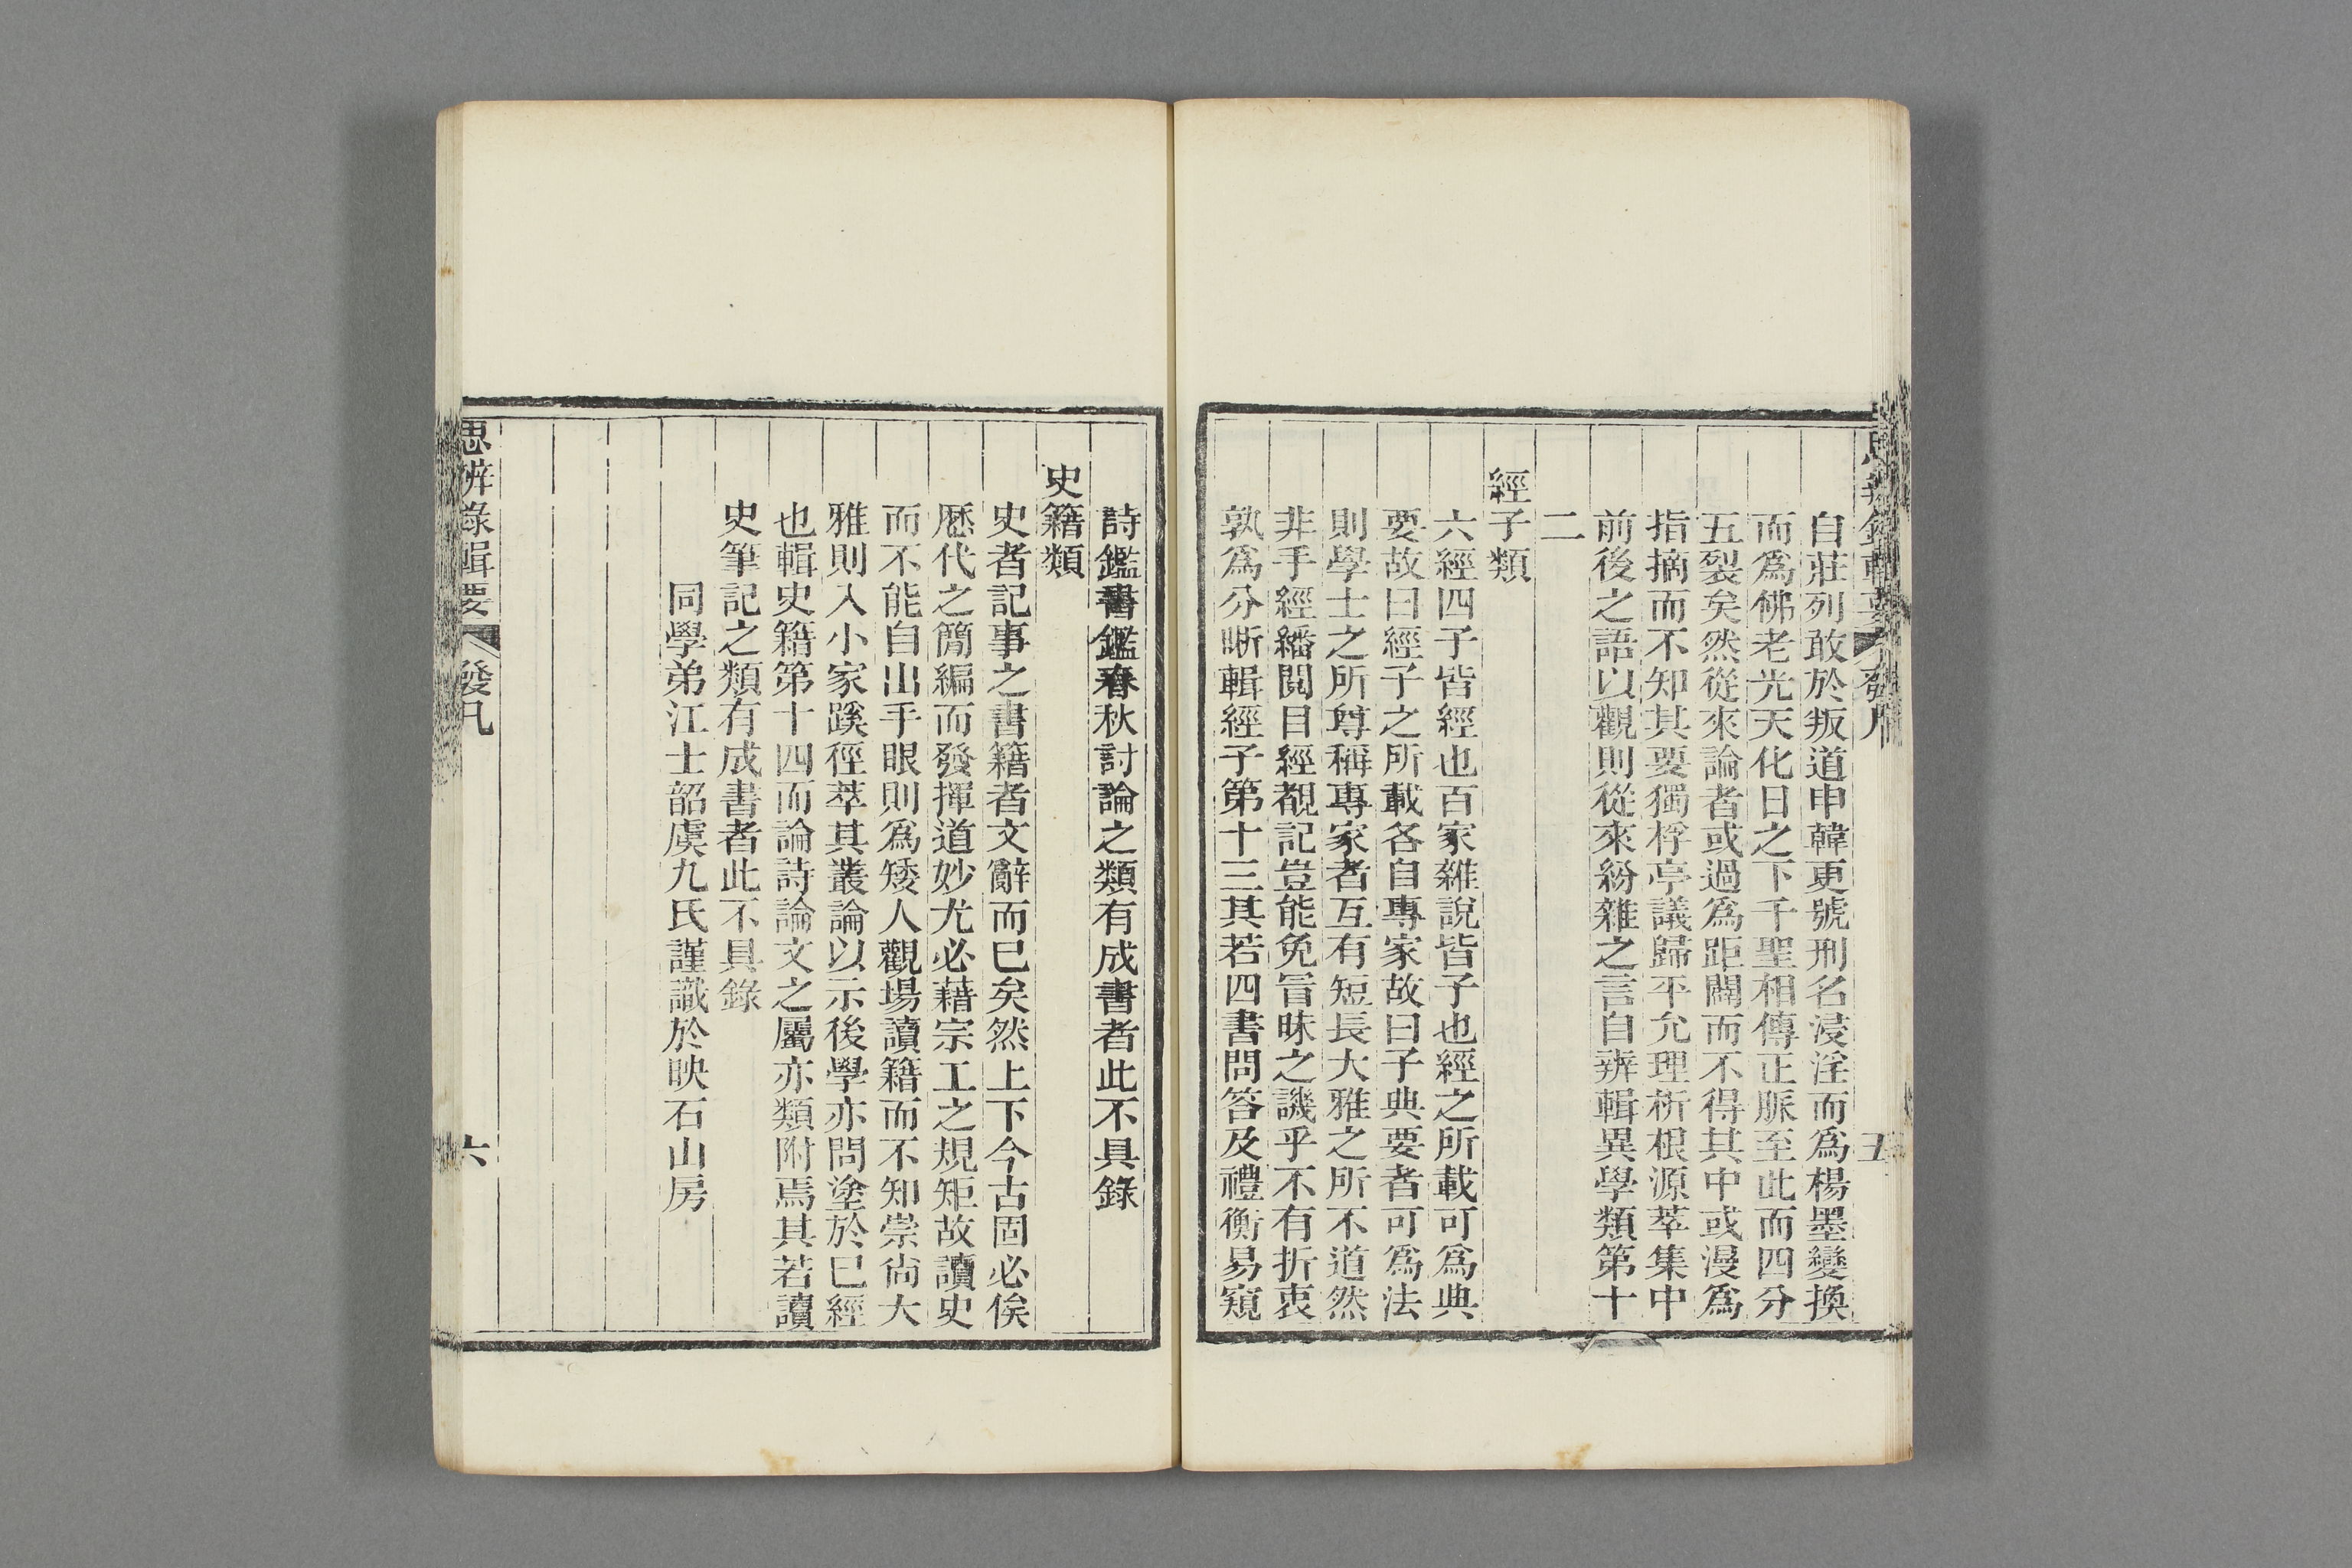 自莊列敢於叛道申韓更號刑名浸淫而為楊墨變換
而為佛老光天化日之下千聖相傳正脈至此而四分
五裂矣然從來論者或過為距闢而不得其中或漫為
指摘而不知其要獨桴亭議歸平允理析根源萃集中
前後之語以觀則從來紛雜之言自辨輯異學類第十
二
經子類
六經四子皆經也百家雜說皆子也經之所載可為典
要故曰經子之所載各自專家故曰子典要者可為法
則學士之所尊稱專家者互有短長大雅之所不道然
非手經繙閱目經覩記豈能免冒昧之譏乎不有折衷
孰為分晰輯經子第十三其若四書問答及禮衡易窺
詩鑑書鑑春秋討論之類有成書者此不具錄
史籍類
史者記事之書籍者文辭而已矣然上下今古固必俟
歷代之簡編而發揮道妙尤必藉宗工之規矩故讀史
而不能自出手眼則為矮人觀場讀籍而不知崇尚大
雅則入小家蹊徑萃其叢論以示後學亦問塗於已經
也輯史籍第十四而論詩論文之屬亦類附焉其若讀
史筆記之類有成書者此不具錄
同學弟江士韶虞九氏謹識於映石山房
思辨錄輯要
發凡
六